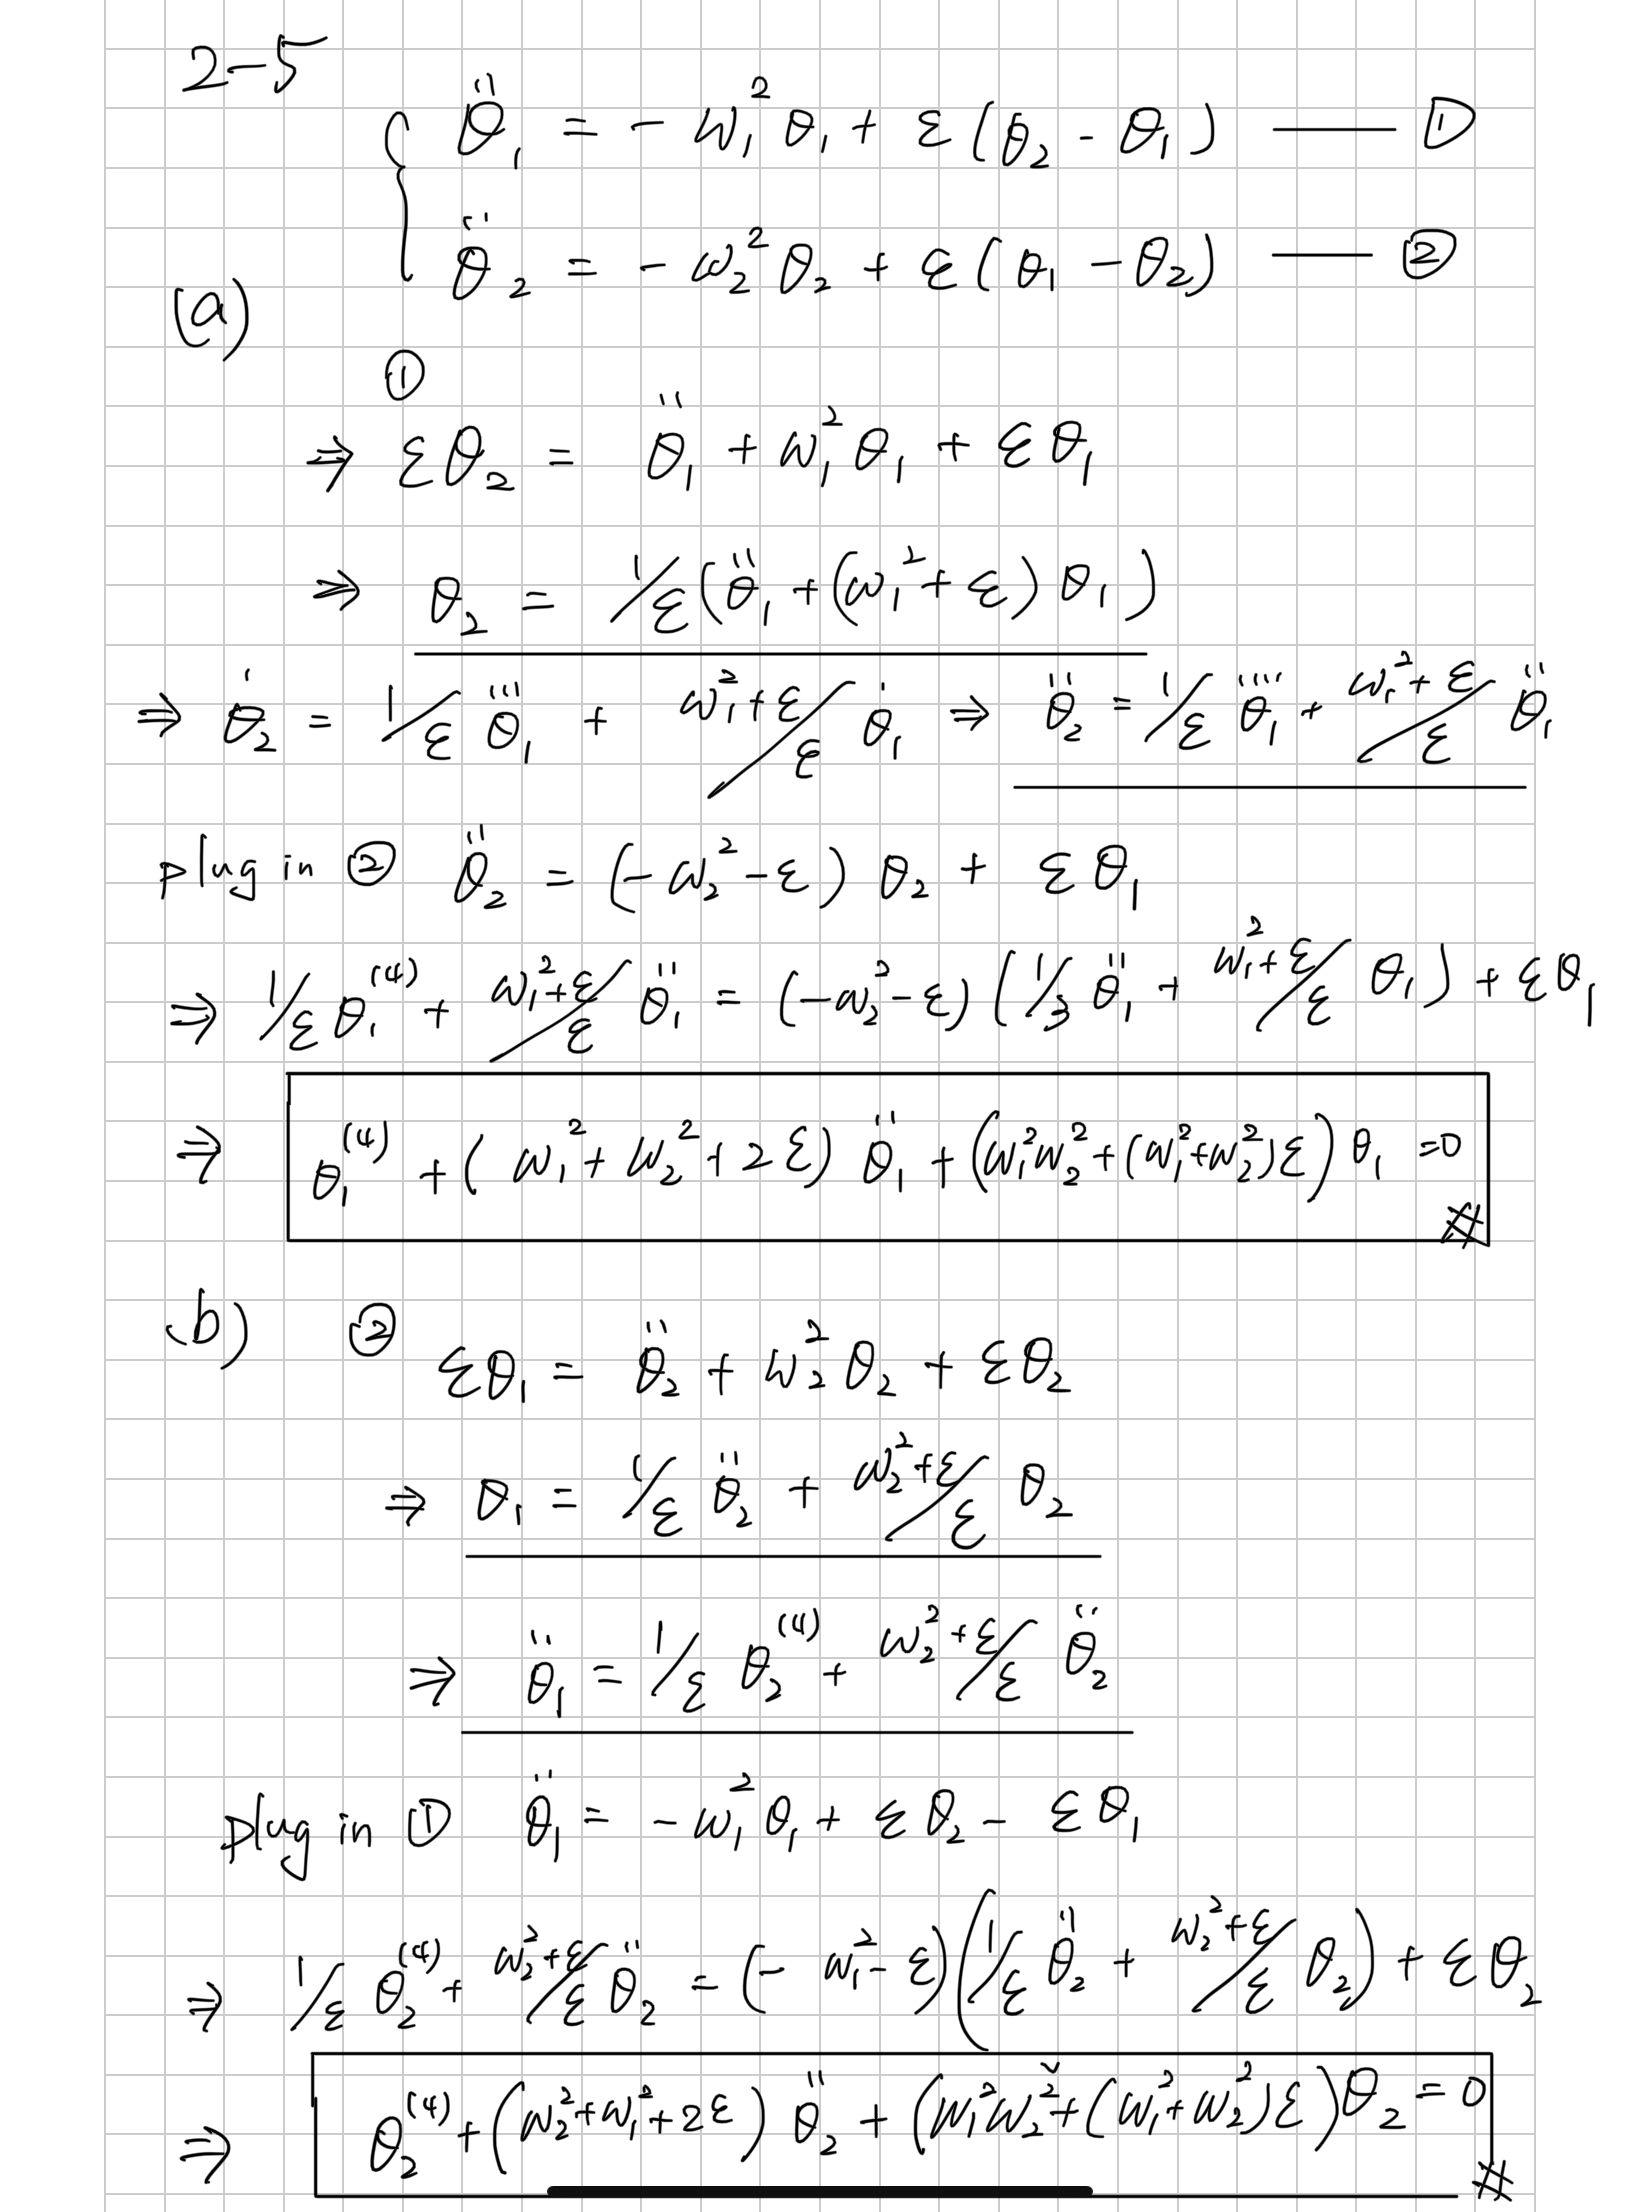 2-5
θ̈₁ = - ω₁² θ₁ + ε (θ₂ - θ₁) —— ①
θ̈₂ = - ω₂² θ₂ + ε (θ₁ - θ₂) —— ②
(a)
①
⇒ εθ₂ = θ̈₁ + ω₁² θ₁ + εθ₁
⇒ θ₂ = 1/ε (θ̈₁ + (ω₁² + ε) θ₁)
⇒ θ̇₂ = 1/ε θ⃛₁ + (ω₁² + ε)/ε θ̇₁ ⇒ θ̈₂ = 1/ε θ⃜₁ + (ω₁² + ε)/ε θ̈₁
plug in ② θ̈₂ = (-ω₂² - ε) θ₂ + εθ₁
⇒ 1/ε θ₁⁽⁴⁾ + (ω₁² + ε)/ε θ̈₁ = (-ω₂² - ε) (1/3 θ̈₁ + (ω₁² + ε)/ε θ₁) + εθ₁
⇒ θ₁⁽⁴⁾ + (ω₁² + ω₂² + 2ε) θ̈₁ + (ω₁²ω₂² + (ω₁² + ω₂²)ε) θ₁ = 0 #
(b) ② εθ₁ = θ̈₂ + ω₂² θ₂ + εθ₂
⇒ θ₁ = 1/ε θ̈₂ + (ω₂² + ε)/ε θ₂
⇒ θ̈₁ = 1/ε θ₂⁽⁴⁾ + (ω₂² + ε)/ε θ̈₂
plug in ① θ̈₁ = - ω₁² θ₁ + εθ₂ - εθ₁
⇒ 1/ε θ₂⁽⁴⁾ + (ω₂² + ε)/ε θ̈₂ = (- ω₁² - ε) (1/ε θ̈₂ + (ω₂² + ε)/ε θ₂) + εθ₂
⇒ θ₂⁽⁴⁾ + (ω₂² + ω₁² + 2ε) θ̈₂ + (ω₁²ω₂² + (ω₁² + ω₂²)ε) θ₂ = 0 #